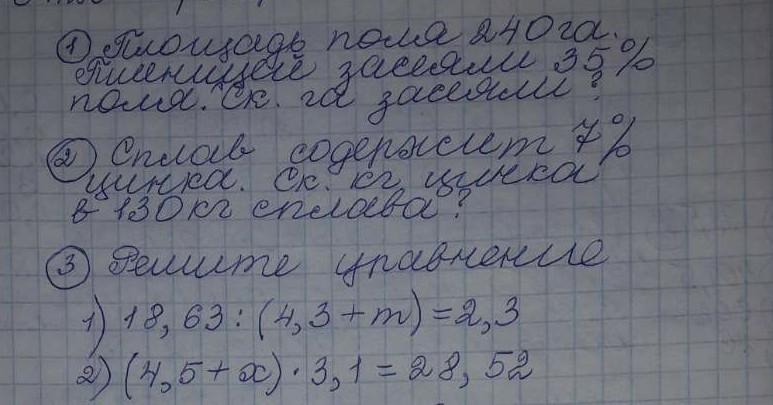 ① Площадь поля 240 га.
Пшеницей засеяли 35%
поля. Ск. га засеяли?
② Сплав содержит 7%
цинка. Ск. кг цинка
в 130 кг сплава?
③ Решите уравнение
1) 18,63 : (4,3 + m) = 2,3
2) (4,5 + x) · 3,1 = 28,52